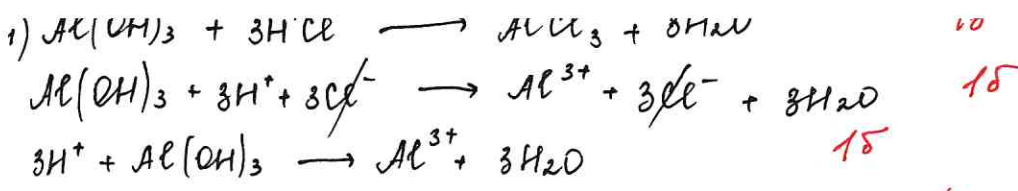 1) Al(OH)3 + 3HCl ⟶ AlCl3 + 3H2O 1б
Al(OH)3 + 3H⁺ + 3Cl⁻ ⟶ Al³⁺ + 3Cl⁻ + 3H2O 1б
3H⁺ + Al(OH)3 ⟶ Al³⁺ + 3H2O 1б